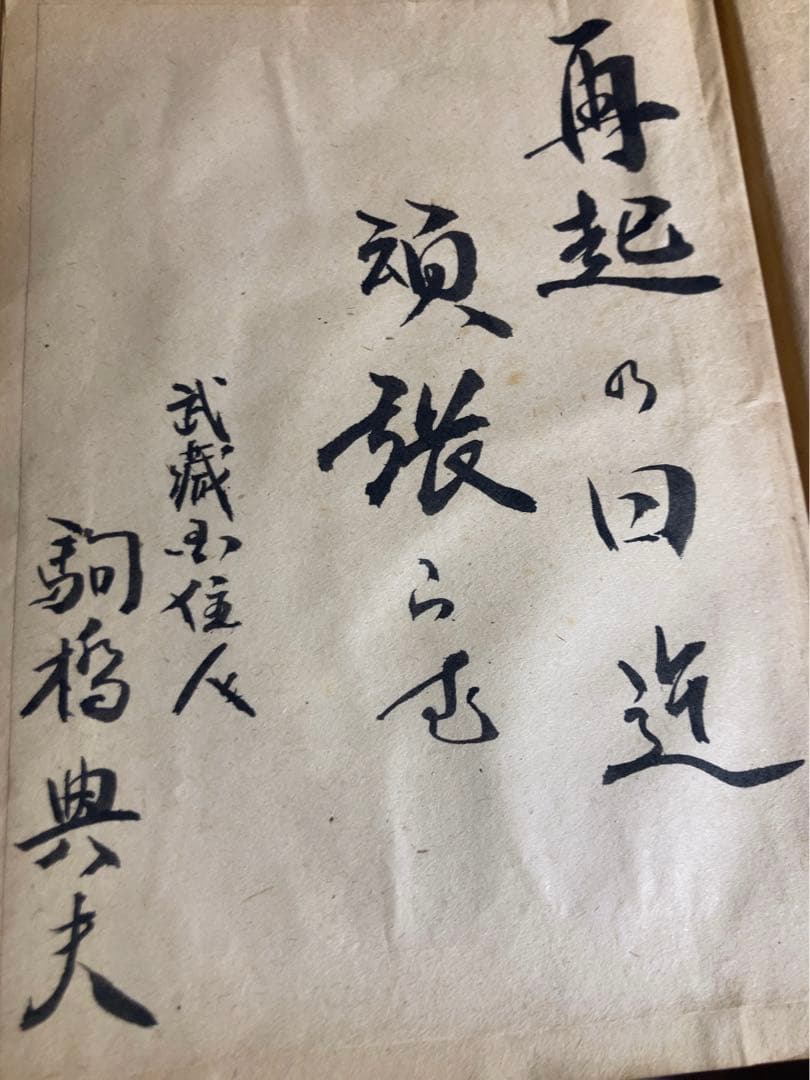 再起の日迄
頑張らむ
武藏国住人
駒橋典夫